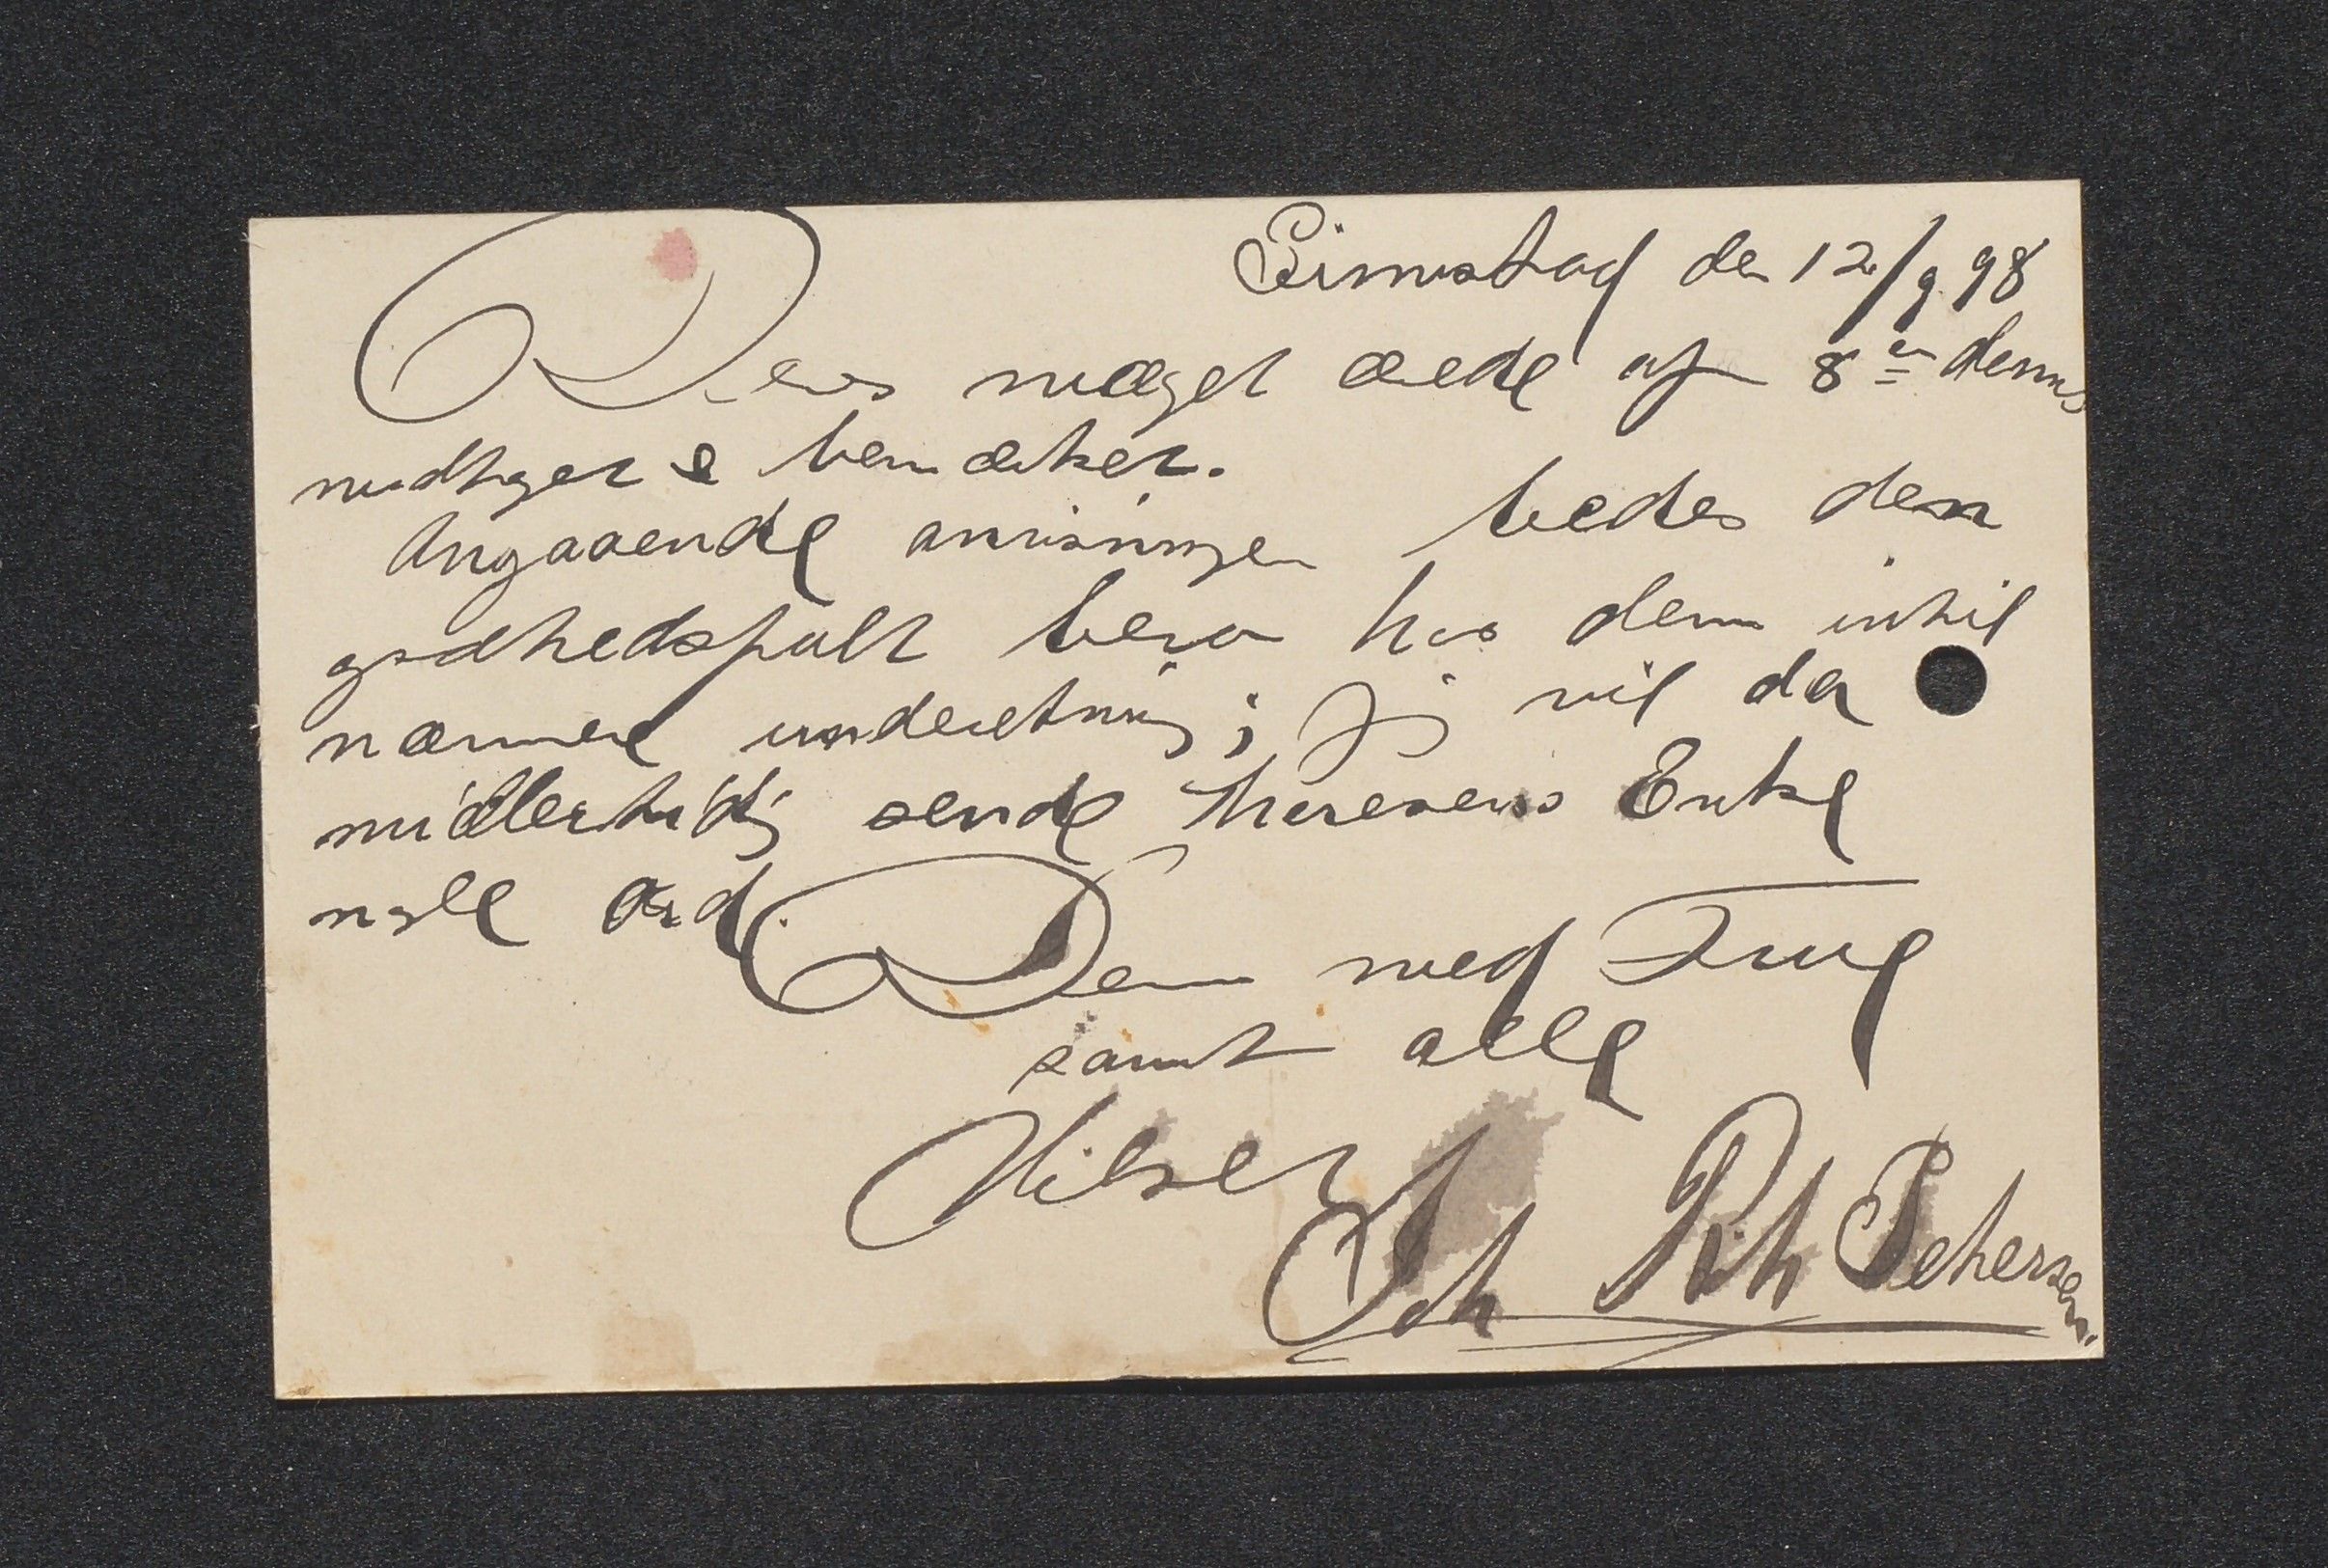 Grimstad den 12/9 98
Deres meget ærede af 8en dennes
modtget & bemærket.
Angaaende anvisningen bedes den
godhedsfult bero hos dem intil
nærmere underetning; Jeg vil da
midlertidig sende Thoresens Enke
nole ord.
Dem med Frue
samt alle
Hilset
Joh Rich Petersen.